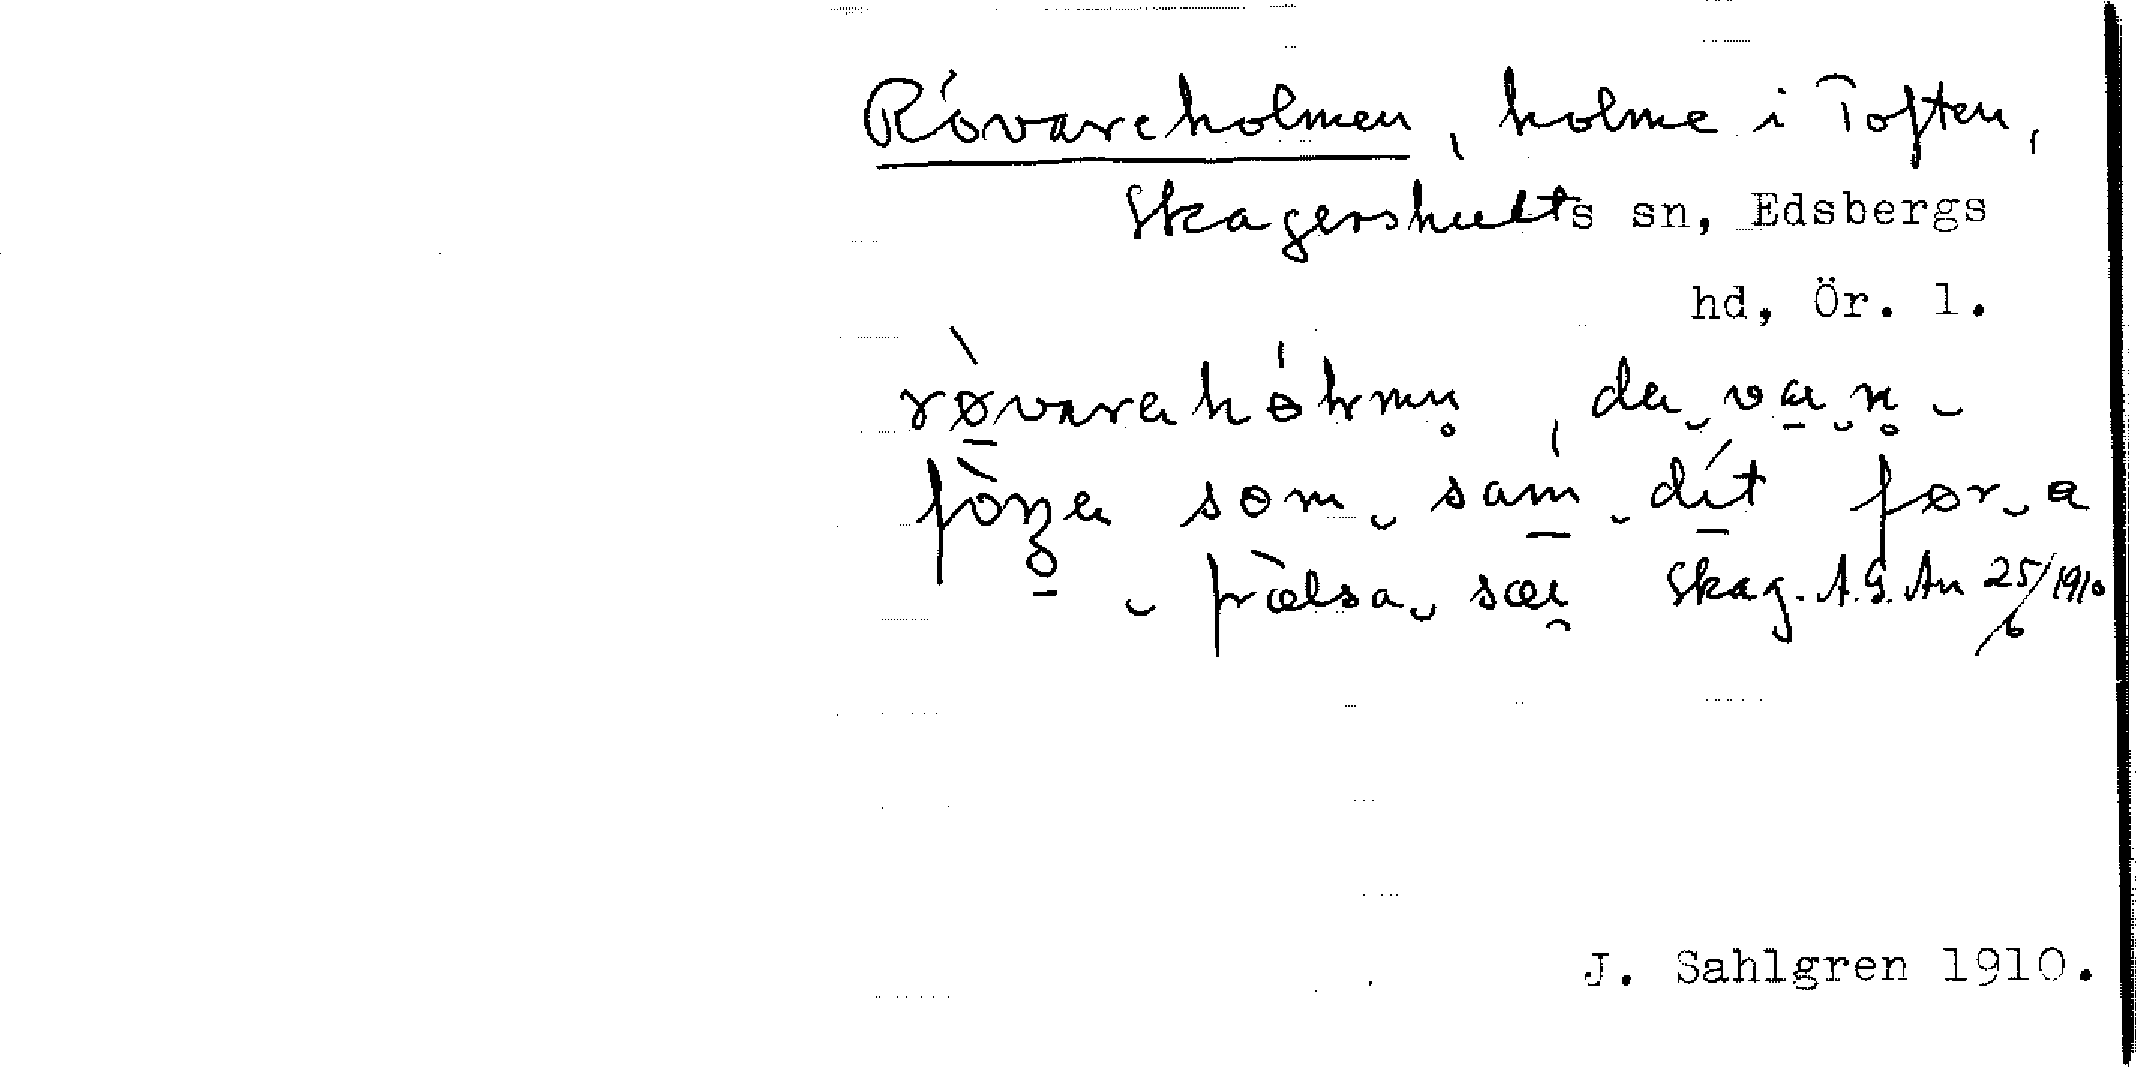 Rövareholmen, holme i Toften,
Skagershults sn, Edsbergs
hd, Ör. l.
rø̀varahólmn̥, da vɑ n̥
fòŋɑ som sam dít før a
frælsa sæ Skag. A.G. An 25/6 1910
J. Sahlgren 1910.